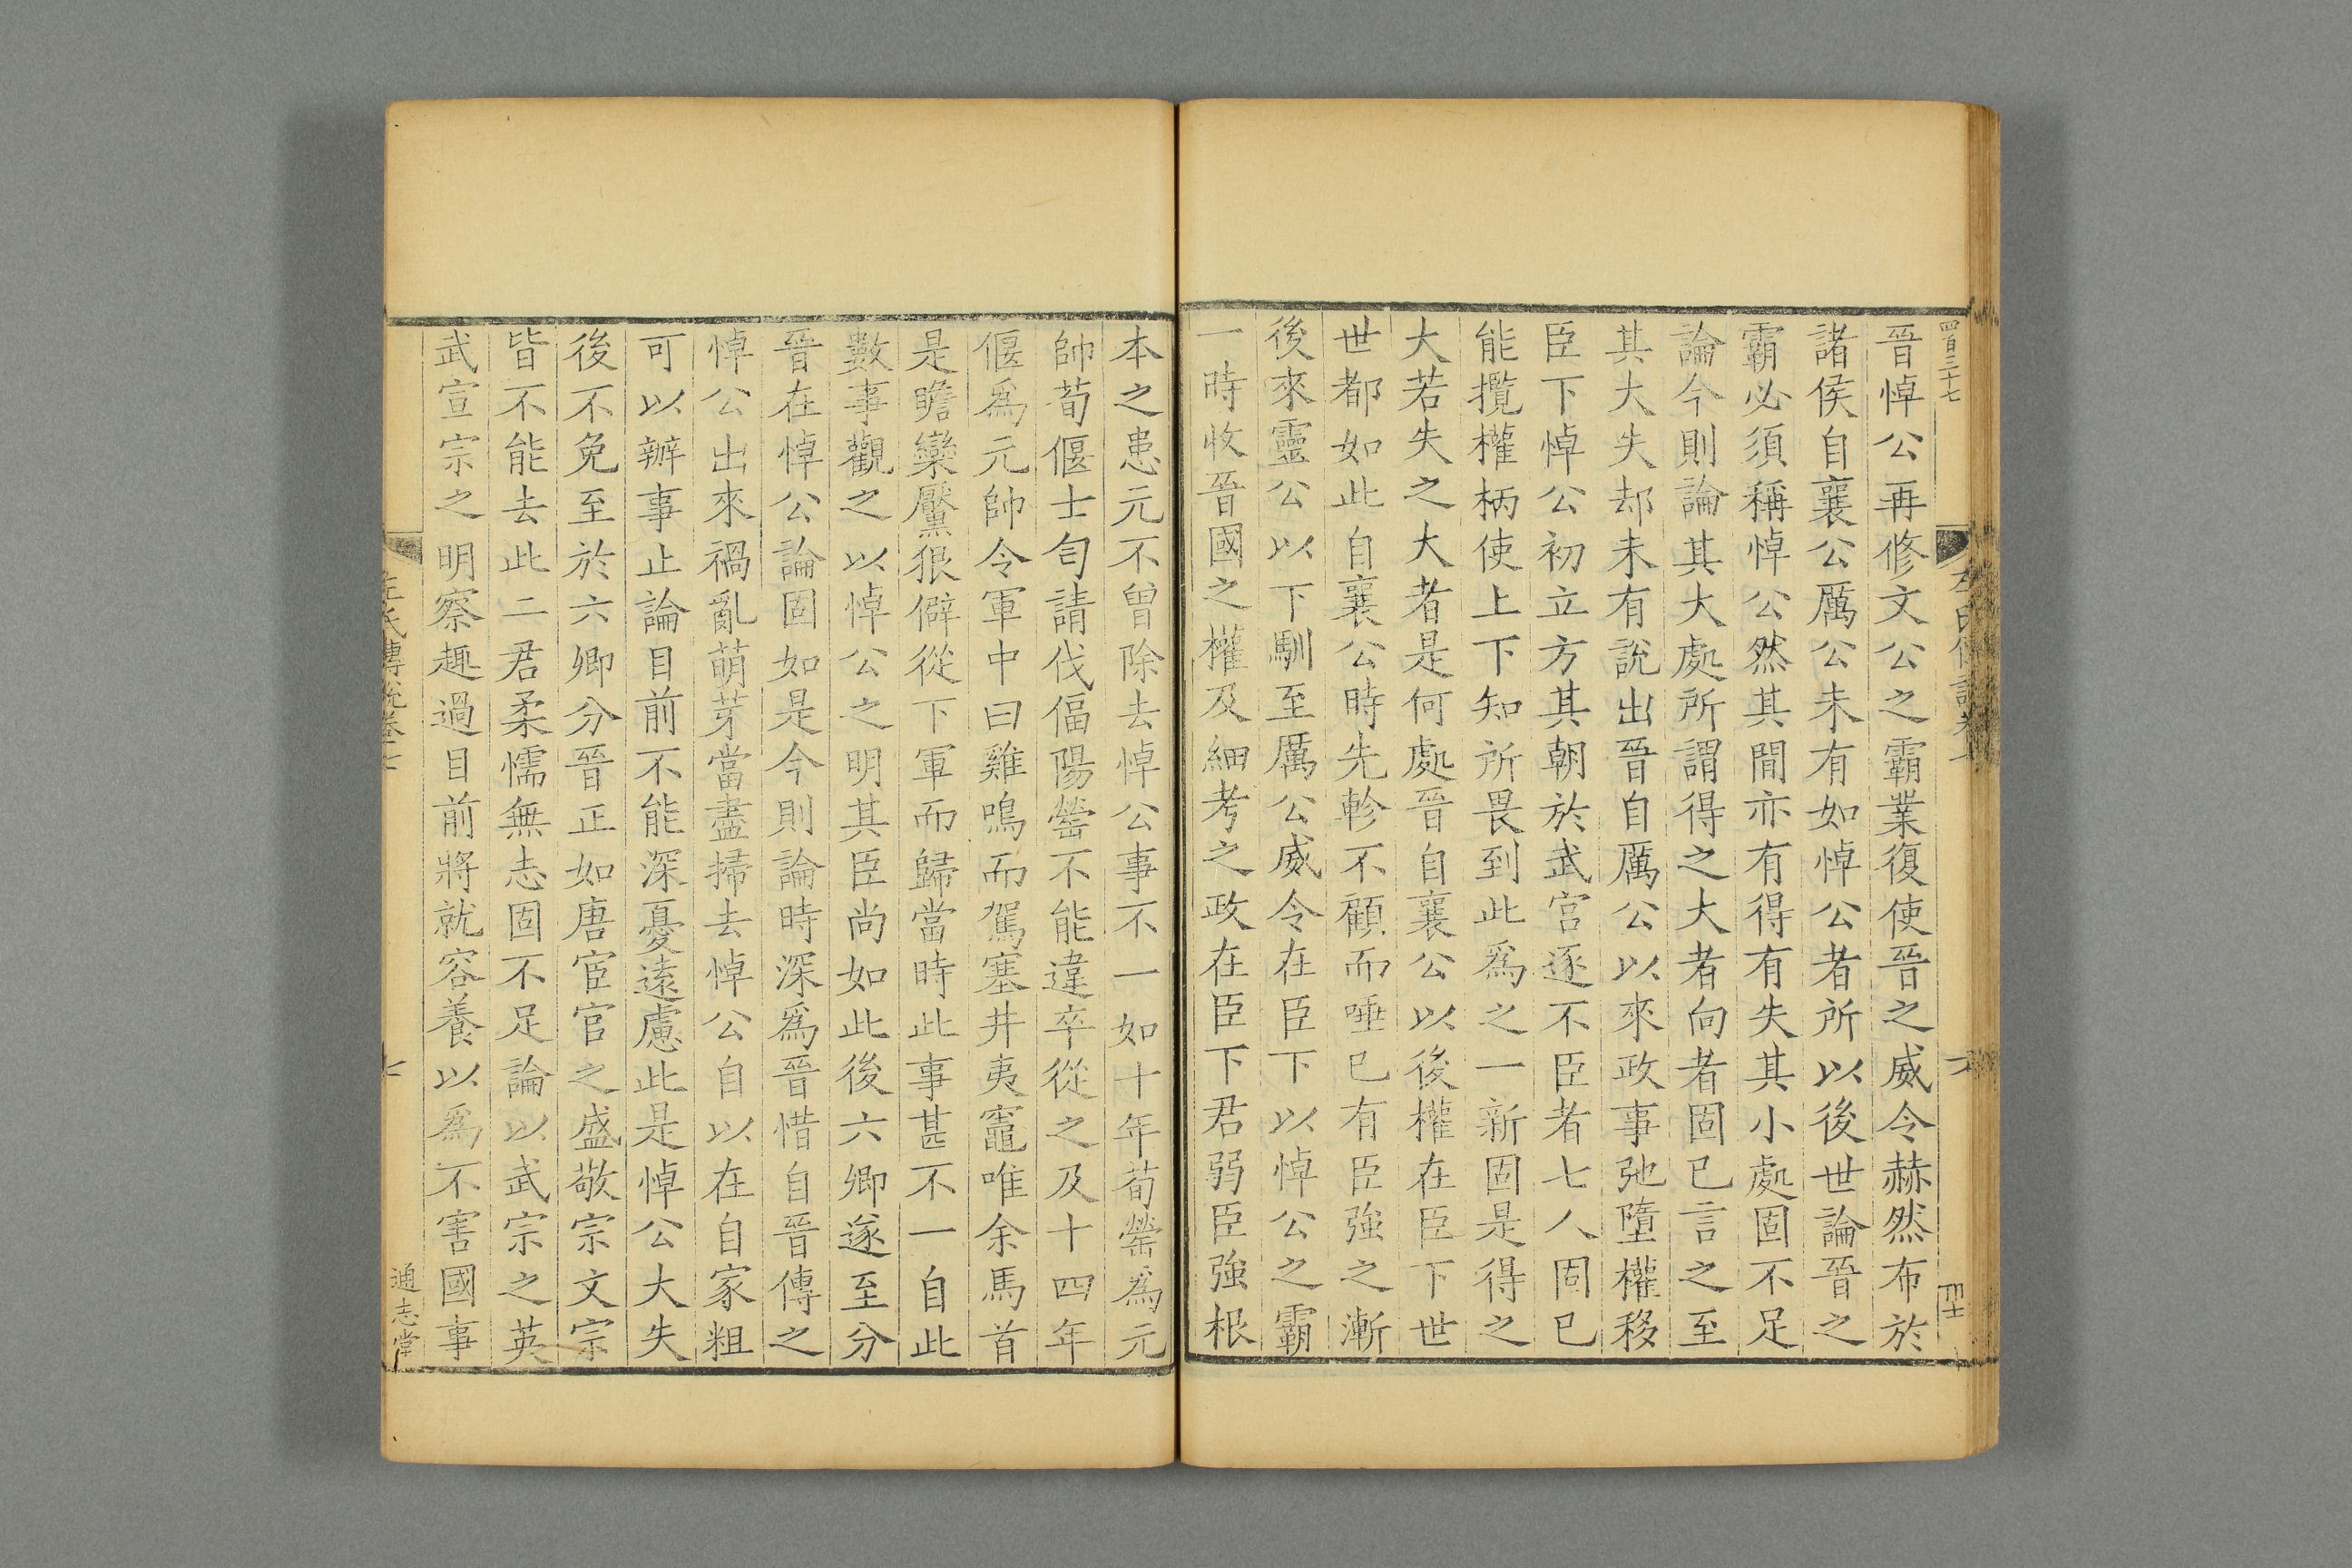 四百三十七
晉悼公再修文公之霸業復使晉之威令赫然布於
諸侯自襄公厲公未有如悼公者所以後世論晉之
霸必須稱悼公然其間亦有得有失其小處固不足
論今則論其大處所謂得之大者向者固已言之至
其大失却未有說出晉自厲公以來政事弛墮權移
臣下悼公初立方其朝於武宮逐不臣者七人固已
能攬權柄使上下知所畏到此爲之一新固是得之
大若失之大者是何處晉自襄公以後權在臣下世
世都如此自襄公時先軫不顧而唾已有臣強之漸
後來靈公以下馴至厲公威令在臣下以悼公之霸
一時收晉國之權及細考之政在臣下君弱臣強根
本之患元不曾除去悼公事不一如十年荀罃爲元
帥荀偃士匄請伐偪陽罃不能違卒從之及十四年
偃爲元帥令軍中曰雞鳴而駕塞井夷竈唯余馬首
是瞻欒黶狠僻從下軍而歸當時此事甚不一自此
數事觀之以悼公之明其臣尚如此後六卿遂至分
晉在悼公論固如是今則論時深爲晉惜自晉傳之
悼公出來禍亂萌芽當盡掃去悼公自以在自家粗
可以辦事止論目前不能深憂遠慮此是悼公大失
後不免至於六卿分晉正如唐宦官之盛敬宗文宗
皆不能去此二君柔懦無志固不足論以武宗之英
武宣宗之明察趣過目前將就容養以爲不害國事
左氏傳說卷七
七
通志堂